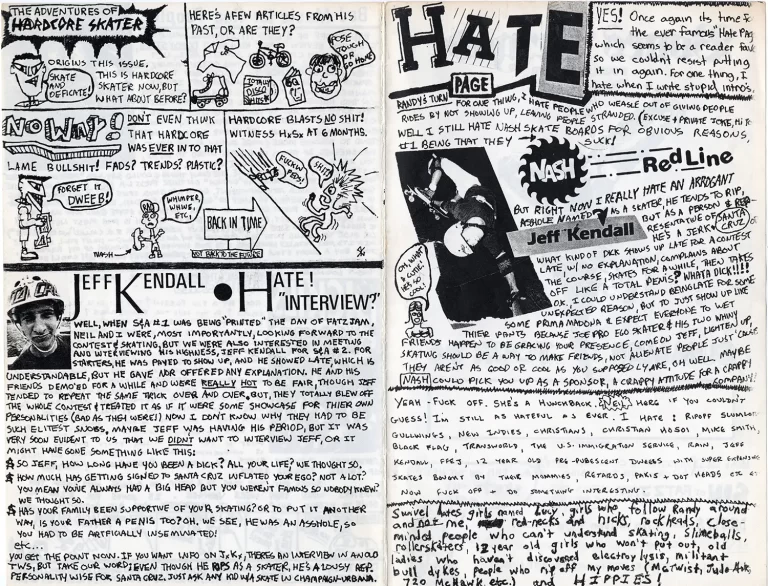 THE ADVENTURES OF
HARDCORE SKATER
ORIGINS THIS ISSUE.
THIS IS HARDCORE
SKATER NOW, BUT
WHAT ABOUT BEFORE?
SKATE
AND
DEFICATE!
HERE'S A FEW ARTICLES FROM HIS
PAST, OR ARE THEY?
TOTALLY
DISCO
POSE
TOUGH
OR
GO HOME
NO WAY!
DON'T EVEN THINK
THAT HARDCORE
WAS EVER IN TO THAT
LAME BULLSHIT! FADS? TRENDS? PLASTIC?
FORGET IT
DWEEB!
WHIMPER,
WHINE,
ETC,
NASH
BACK IN TIME
NOT BACK TO THE FUTURE
HARDCORE BLASTS NO SHIT!
WITNESS HxSx AT 6 MONTHS.
FUCKIN'
PEDS!
SHIT!
JEFF KENDALL • HATE!
"INTERVIEW?"
WELL, WHEN S&A #1 WAS BEING "PRINTED" THE DAY OF FATZ JAM,
NEIL AND I WERE, MOST IMPORTANTLY, LOOKING FORWARD TO THE
CONTEST & SKATING, BUT WE WERE ALSO INTERESTED IN MEETING
AND INTERVIEWING HIS HIGHNESS, JEFF KENDALL FOR S&A #2. FOR
STARTERS, HE WAS PAYED TO SHOW UP, AND HE SHOWED LATE, WHICH IS
UNDERSTANDABLE, BUT HE GAVE NOR OFFERED ANY EXPLANATION. HE AND HIS
FRIENDS DEMO'ED FOR A WHILE AND WERE REALLY HOT TO BE FAIR, THOUGH JEFF
TENDED TO REPEAT THE SAME TRICK OVER AND OVER. BUT, THEY TOTALLY BLEW OFF
THE WHOLE CONTEST & TREATED IT AS IF IT WERE SOME SHOWCASE FOR THIER OWN
PERSONALITIES (BAD AS THEY WERE!) NOW I DON'T KNOW WHY THEY HAD TO BE
SUCH ELITEST SNOBS, MAYBE JEFF WAS HAVING HIS PERIOD, BUT IT WAS
VERY SOON EVIDENT TO US THAT WE DIDN'T WANT TO INTERVIEW JEFF, OR IT
MIGHT HAVE GONE SOMETHING LIKE THIS:
SO JEFF, HOW LONG HAVE YOU BEEN A DICK? ALL YOUR LIFE? WE THOUGHT SO.
HOW MUCH HAS GETTING SIGNED TO SANTA CRUZ INFLATED YOUR EGO? NOT A LOT?
YOU MEAN YOU'VE ALWAYS HAD A BIG HEAD BUT YOU WEREN'T FAMOUS SO NOBODY KNEW?
WE THOUGHT SO.
HAS YOUR FAMILY BEEN SUPPORTIVE OF YOUR SKATING? OR TO PUT IT ANOTHER
WAY, IS YOUR FATHER A PENIS TOO? OH, WE SEE, HE WAS AN ASSHOLE, SO
YOU HAD TO BE ARTIFICALLY INSEMINATED!
etc...
YOU GET THE POINT NOW. IF YOU WANT INFO ON J.K., THERES AN INTERVIEW IN AN OLD
TWS, BUT TAKE OUR WORD; EVEN THOUGH HE RIPS AS A SKATER, HE'S A LOUSY REP.
PERSONALITY WISE FOR SANTA CRUZ. JUST ASK ANY KID W/A SKATE IN CHAMPAIGN-URBANA.
HATE
PAGE
YES! Once again its time for
the ever famous Hate Page
which seems to be a reader
so we couldn't resist putting
it in again. For one thing, I
hate when I write stupid intro's.
RANDY'S TURN
FOR ONE THING, I HATE PEOPLE WHO WEASLE OUT OF GIVING PEOPLE
RIDES BY NOT SHOWING UP, LEAVING PEOPLE STRANDED. (EXCUSE + PRIVATE JOKE,
WELL I STILL HATE NASH SKATE BOARDS FOR OBVIOUS REASONS,
#1 BEING THAT THEY SUCK!
NASH
Red Line
BUT RIGHT NOW I REALLY HATE AN ARROGANT
ASSHOLE NAMED
Jeff Kendall
AS A SKATER, HE TENDS TO RIP,
BUT AS A PERSON & REP-
RESENTATIVE OF SANTA CRUZ
HE'S A JERK.
WHAT KIND OF DICK SHOWS UP LATE FOR A CONTEST
LATE, W/ NO EXPLANATION, COMPLAINS ABOUT
THE COURSE, SKATES FOR A WHILE, THEN TAKES
OFF LIKE A TOTAL PENIS? WHAT A DICK!!!!
OK, I COULD UNDERSTAND BEING LATE FOR SOME
UNEXPECTED REASON, BUT TO JUST SHOW UP LIKE
SOME PRIMA MADONNA & EXPECT EVERYONE TO WET
THIER PANTS BECAUSE THE PRO EGO SKATER & HIS TWO WHINY
FRIENDS HAPPEN TO BE GRACING YOUR PRESENCE. COME ON JEFF, LIGHTEN UP,
SKATING SHOULD BE A WAY TO MAKE FRIENDS, NOT ALIENATE PEOPLE JUST 'CAUSE
THEY AREN'T AS GOOD OR COOL AS YOU SUPPOSEDLY ARE, OH WELL, MAYBE
NASH COULD PICK YOU UP AS A SPONSOR, A CRAPPY ATTITUDE FOR A CRAPPY
COMPANY!
OH, WHAT
A CUTIE!
HE'S SO
COOL!
YEAH. FUCK OFF. SHE'S A HUNCHBACK HORE IF YOU COULDN'T
GUESS! I'M STILL AS HATEFUL AS EVER. I HATE: RIPOFF SLUMLORDS
GULLWINGS, NEW INDIES, CHRISTIANS, CHRISTIAN HOSOI, MIKE SMITH,
BLACK FLAG, TRANSWORLD, THE U.S. IMMIGRATION SERVICE, RAIN, JEFF
KENDALL, 12 YEAR OLD PRE-PUBESCENT DWEEBS WITH SUPER EXPENSIVE
SKATES BOUGHT BY THEIR MOMMIES, RETARDS, PAKIS + DOT HEADS ETC
NOW FUCK OFF + DO SOMETHING INTERESTING.
Swivel hates girls named Lucy, girls who follow Randy around
and not me, red-necks and hicks, rockheads, close-
minded people who can't understand skating, slimeballs,
rollerskaters, 12 year old girls who won't put out, old
ladies who haven't discovered electrolysis, militant
bull dykes, people who rip off my moves (McTwist, Judo Air,
720 McHawk, etc.) and HIPPIES